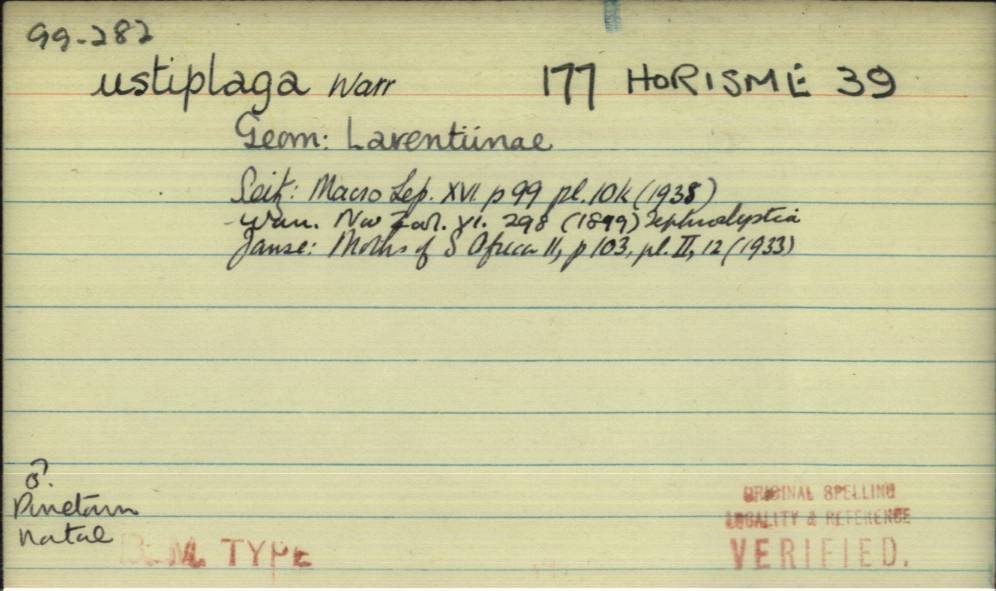 99-282
ustiplaga Warr 177 HORISME 39
Geom: Larentiinae
Seit: Macro Lep. XVI p 99 pl. 10k (1938)
Warr. Nov Zool. VI. 298 (1899) Tephroclystia
Janse: Moths of S Africa II, p 103, pl. II, 12 (1933)
♂.
Pinetown
Natal
B.M. TYPE
ORIGINAL SPELLING
LOCALITY & REFERENCE
VERIFIED.